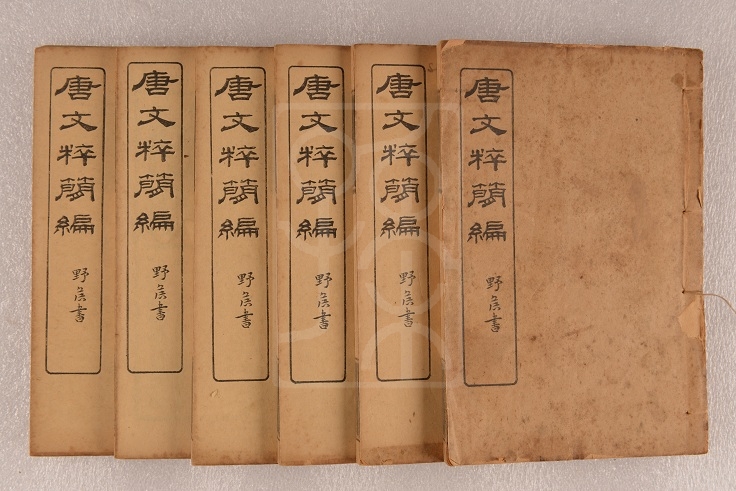 唐文粹簡編 野侯書
唐文粹簡編 野侯書
唐文粹簡編 野侯書
唐文粹簡編 野侯書
唐文粹簡編 野侯書
唐文粹簡編 野侯書